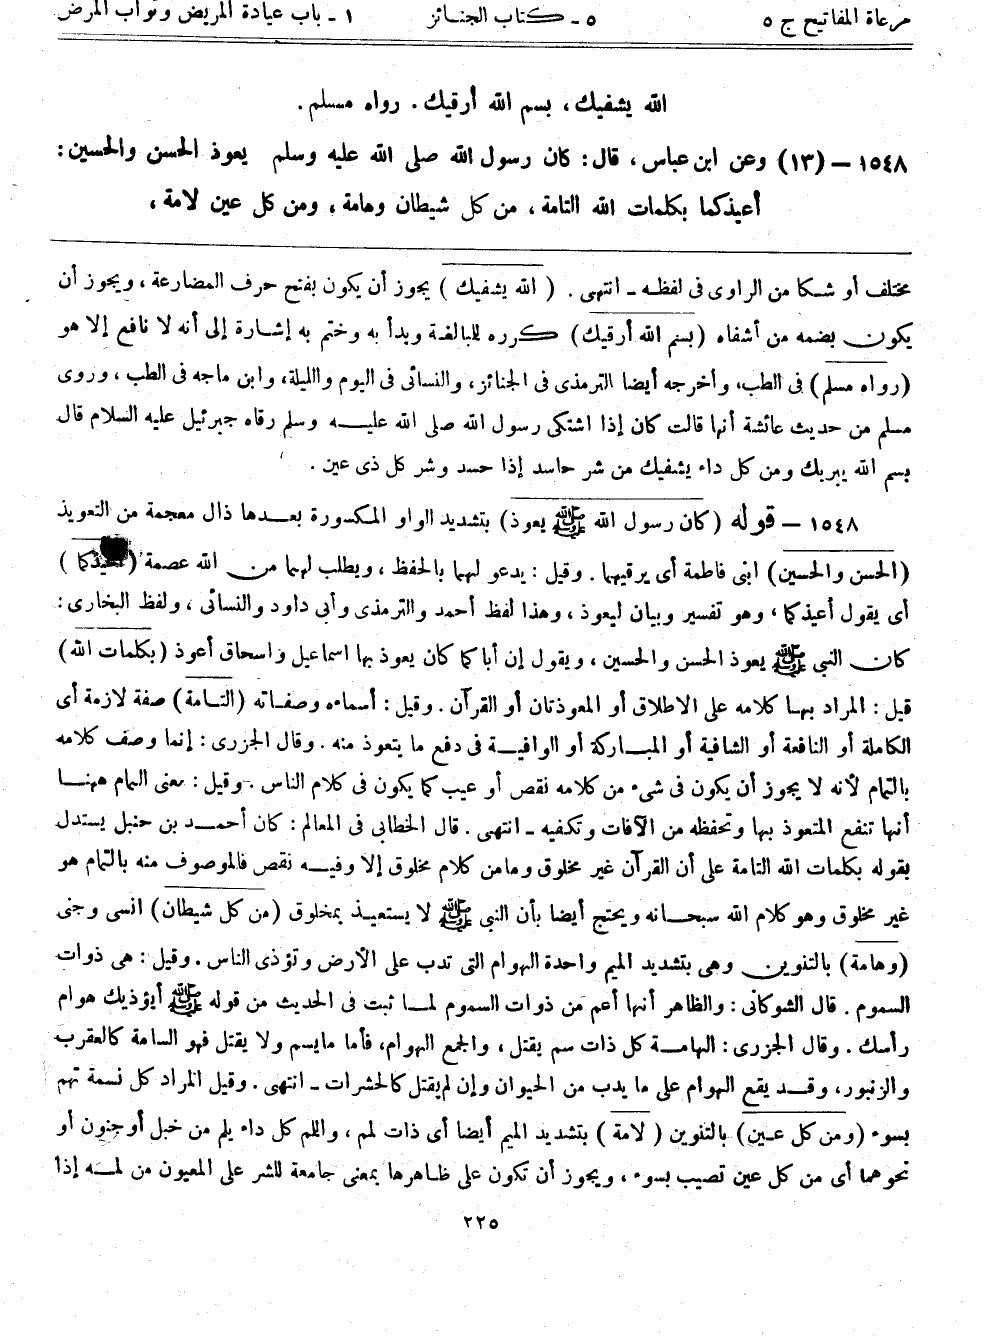 مرعاة المفاتيح ج ٥ ٥ ـ كتاب الجنائز ١ ـ باب عيادة المريض وثواب المرض
الله يشفيك، بسم الله أرقيك. رواه مسلم.
١٥٤٨ – (١٣) وعن ابن عباس، قال: كان رسول الله صلى الله عليه وسلم يعوذ الحسن والحسين:
أعيذكما بكلمات الله التامة، من كل شيطان وهامة، ومن كل عين لامة،
مختلف أو شكا من الراوى فى لفظه ـ انتهى. (الله يشفيك) يجوز أن يكون بفتح حرف المضارعة، ويجوز أن
يكون بضمه من أشفاه (بسم الله أرقيك) كرره للبالغة وبدأ به وختم به إشارة إلى أنه لا نافع إلا هو
(رواه مسلم) فى الطب، وأخرجه أيضا الترمذى فى الجنائز، والنسائى فى اليوم والليلة، وابن ماجه فى الطب، وروى
مسلم من حديث عائشة أنها قالت كان إذا اشتكى رسول الله صلى الله عليه وسلم رقاه جبرئيل عليه السلام قال
بسم الله يبريك ومن كل داء يشفيك من شر حاسد إذا حسد وشر كل ذى عين.
١٥٤٨ – قوله (كان رسول الله ﷺ يعوذ) بتشديد الواو المكسورة بعدها ذال معجمة من التعويذ
(الحسن والحسين) ابنى فاطمة أى يرقيهما. وقيل: يدعو لهما بالحفظ، ويطلب لهما من الله عصمة (أعيذكما)
أى يقول أعيذكما، وهو تفسير وبيان ليعوذ، وهذا لفظ أحمد والترمذى وأبى داود والنسائى، ولفظ البخارى:
كان النبى ﷺ يعوذ الحسن والحسين، ويقول إن أباكما كان يعوذ بها اسماعيل واسحاق أعوذ (بكلمات الله)
قيل: المراد بها كلامه على الاطلاق أو المعوذتان أو القرآن. وقيل: أسماءه وصفاته (التامة) صفة لازمة أى
الكاملة أو النافعة أو الشافية أو المباركة أو الوافية فى دفع ما يتعوذ منه. وقال الجزرى: إنما وصف كلامه
بالتمام لأنه لا يجوز أن يكون فى شىء من كلامه نقص أو عيب كما يكون فى كلام الناس. وقيل: معنى التمام ههنا
أنها تنفع المتعوذ بها وتحفظه من الآفات وتكفيه ـ انتهى. قال الخطابى فى المعالم: كان أحمد بن حنبل يستدل
بقوله بكلمات الله التامة على أن القرآن غير مخلوق ومامن كلام مخلوق إلا وفيه نقص فالموصوف منه بالتمام هو
غير مخلوق وهو كلام الله سبحانه ويحتج أيضا بأن النبى ﷺ لا يستعيذ بمخلوق (من كل شيطان) انسى وجنى
(وهامة) بالتنوين وهى بتشديد الميم واحدة الهوام التى تدب على الأرض وتؤذى الناس. وقيل: هى ذوات
السموم. قال الشوكانى: والظاهر أنها أعم من ذوات السموم لما ثبت فى الحديث من قوله ﷺ أيؤذيك هوام
رأسك. وقال الجزرى: الهامة كل ذات سم يقتل، والجمع الهوام، فأما مايسم ولا يقتل فهو السامة كالعقرب
والزنبور، وقد يقع الهوام على ما يدب من الحيوان وإن لم يقتل كالحشرات ـ انتهى. وقيل المراد كل نسمة تهم
بسوء (ومن كل عين) بالتنوين (لامة) بتشديد الميم أيضا أى ذات لمم، واللمم كل داء يلم من خبل أو جنون أو
نحوهما أى من كل عين تصيب بسوء، ويجوز أن تكون على ظاهرها بمعنى جامعة للشر على المعيون من لمه إذا
٢٢٥